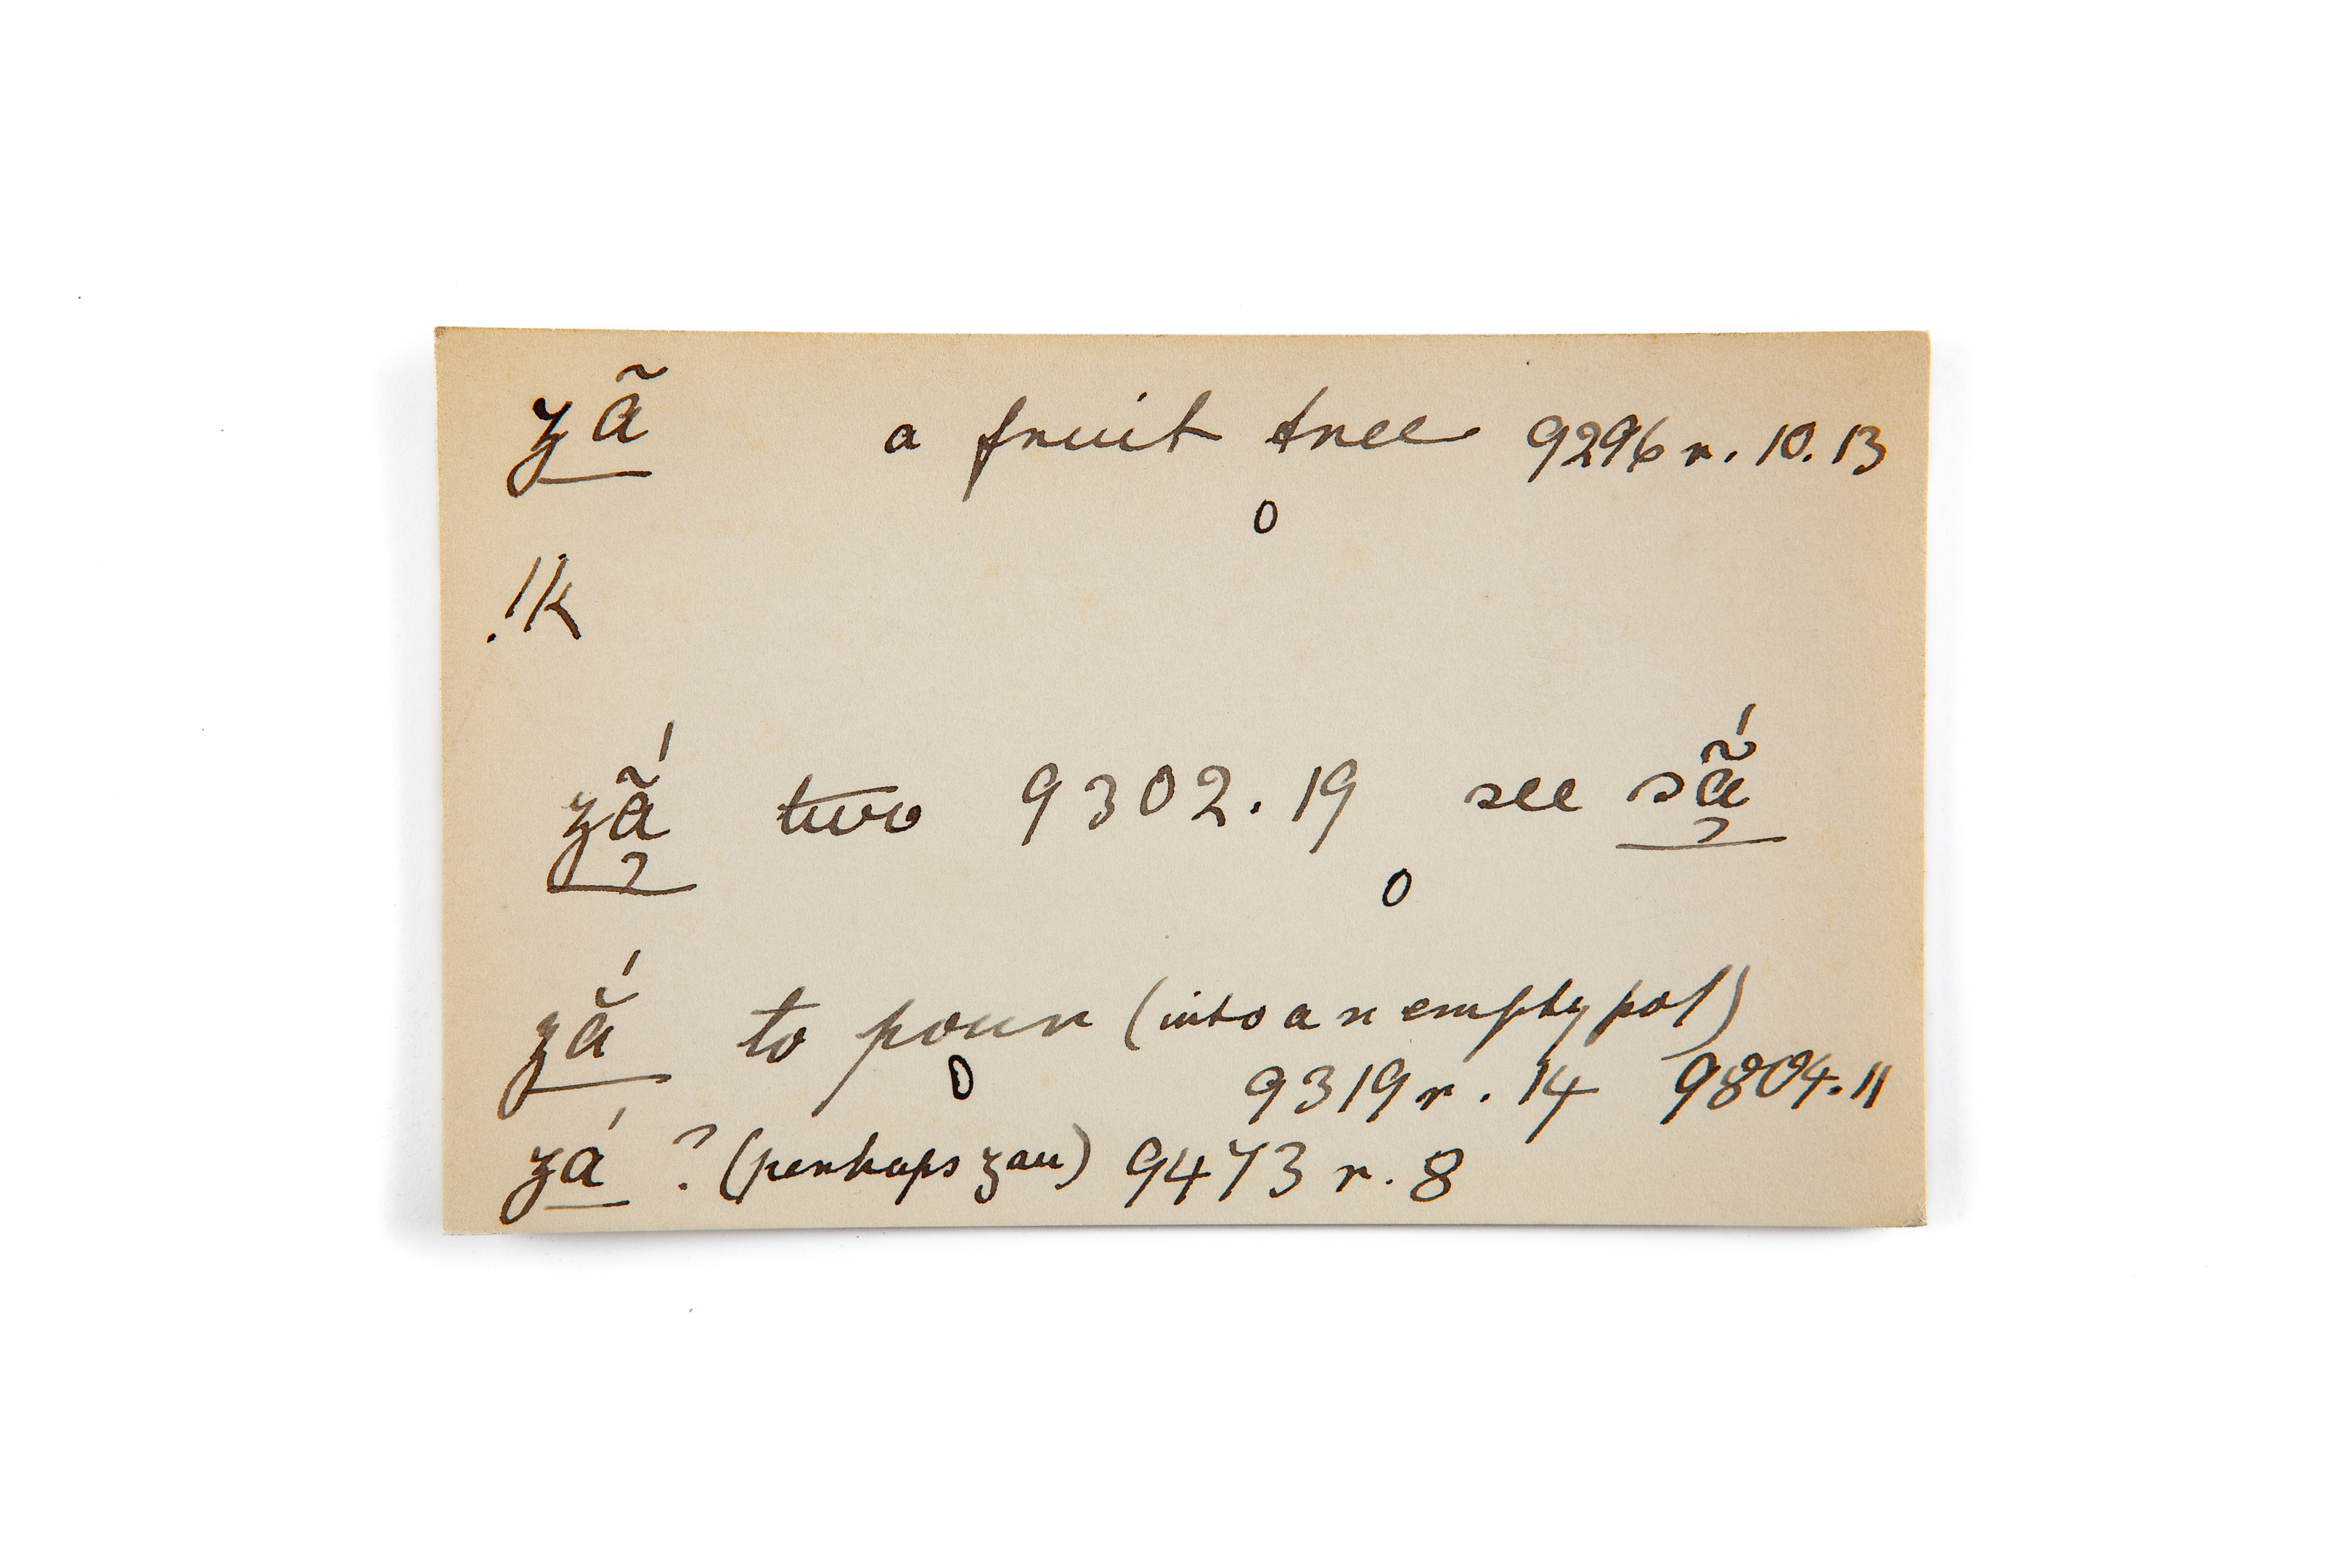 zã a fruit tree 9296 r. 10. 13
0
!k
zã́ two 9302. 19 see sã́
0
zắ to pour (into an empty pot)
0 9319 r. 14 9804. 11
zá ? (perhaps zau) 9473 r. 8